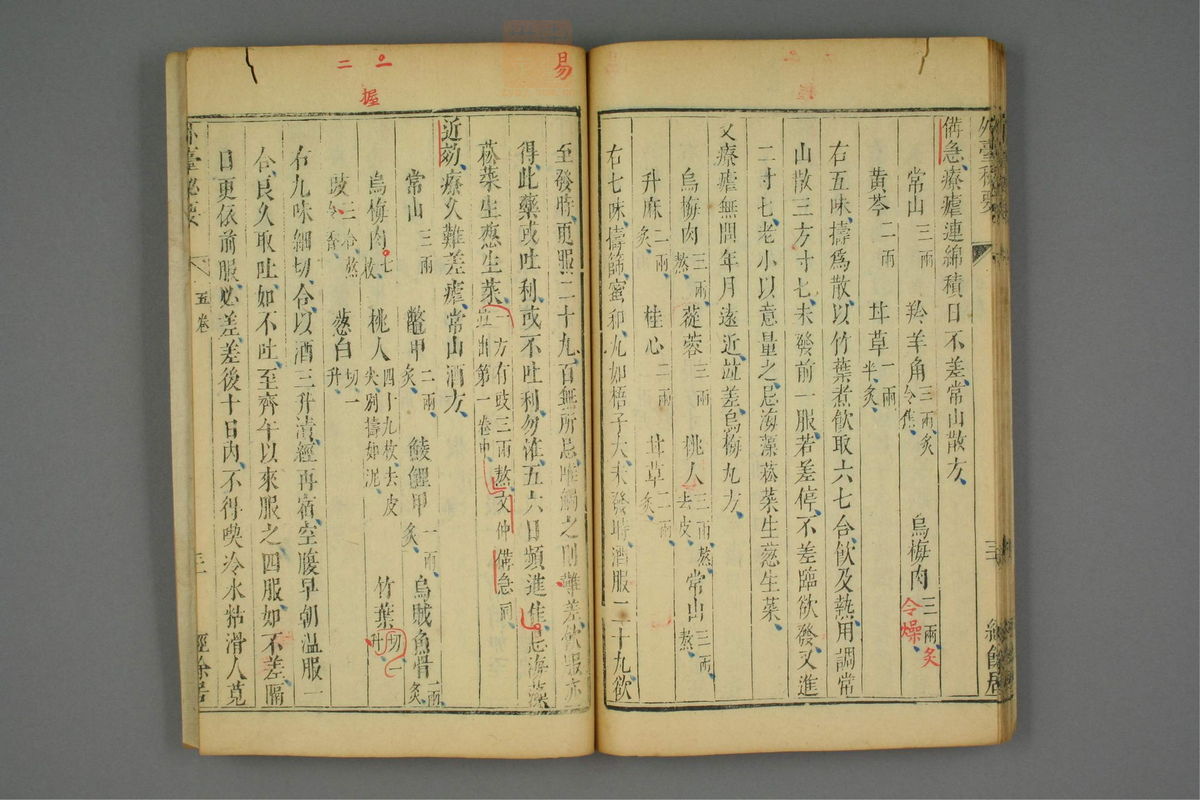 備急療瘧連綿積日不差常山散方
常山三兩 羚羊角三兩炙令焦 烏梅肉三兩炙令燥
黃芩二兩 甘草一兩半炙
右五味擣為散以竹葉煮飲取六七合飲及熱用調常
山散三方寸七未發前一服若差停不差臨欲發又進
二寸七老小以意量之忌海藻菘菜生葱生菜
又療瘧無問年月遠近並差烏梅丸方
烏梅肉三兩熬 蓯蓉三兩 桃人三兩熬去皮 常山三兩熬
升麻二兩炙 桂心二兩 甘草二兩炙
右七味擣篩蜜和丸如梧子大未發時酒服二十丸欲
至發時更服二十丸百無所忌唯觸之則難差欲服亦
得此藥或吐利或不吐利勿淮五六日頻進佳忌海藻
菘菜生葱生菜一方有豉三兩熬文仲備急同並出第一卷中
近効療久難差瘧常山酒方
常山三兩 鼈甲二兩炙 鯪鯉甲一兩炙 烏賊魚骨一兩炙
烏梅肉七枚 桃人四十九枚去皮尖別擣如泥 竹葉切一升
豉三合熬令香 葱白切一升
右九味細切合以酒三升漬經再宿空腹早朝温服一
合良久取吐如不吐至齊午以來服之四服如不差隔
日更依前服必差差後十日內不得喫冷水粘滑人莧
外臺秘要
五卷
三
經餘居
易
握
二 一